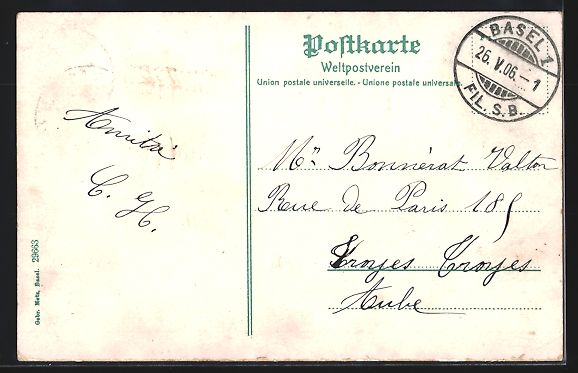 Postkarte
Weltpostverein
Union postale universelle. - Unione postale universale.
BASEL 1
26.V.06.-1
FIL. S.B.
Amitié
C. H.
Mr Bonnérat Valton
Rue de Paris 185
Troyes Troyes
Aube
Gebr. Metz, Basel. 29663